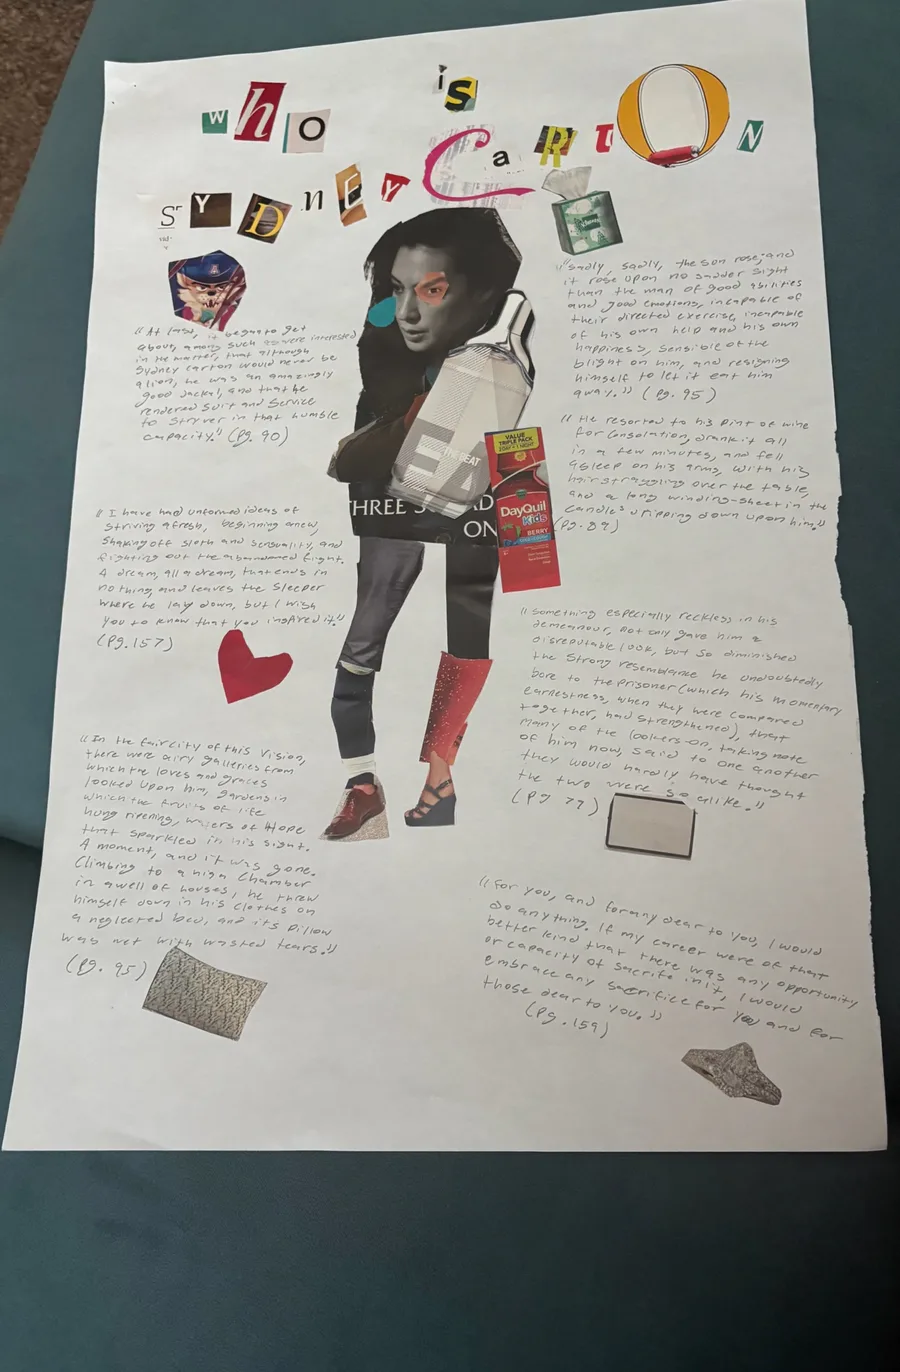 who is
SYDNEY CaRTON
"At last, it began to get
about, among such as were interested
in the matter, that although
Sydney carton would never be
a lion, he was an amazingly
good Jackal, and that he
rendered suit and service
to Stryver in that humble
capacity." (pg. 90)
"Sadly, sadly, the son rose; and
it rose upon no sadder sight
than the man of good abilities
and good emotions, incapable of
their directed exercise, incapable
of his own help and his own
happiness, sensible of the
blight on him, and resigning
himself to let it eat him
away." (pg. 95)
"He resorted to his pint of wine
for consolation, drank it all
in a few minutes, and fell
asleep on his arms, with his
hair straggling over the table,
and a long winding-sheet in the
candles dripping down upon him."
(pg. 89)
EA
THE BEAT
THREE
ON
VALUE
TRIPLE PACK
DayQuil
Kids
BERRY
"I have had unformed ideas of
striving afresh, beginning anew,
shaking off sloth and sensuality, and
fighting out the abandoned fight.
A dream, all a dream, that ends in
nothing, and leaves the sleeper
where he lay down, but I wish
you to know that you inspired it."
(pg. 157)
"Something especially reckless in his
demeanour, not only gave him a
disreputable look, but so diminished
the strong resemblance he undoubtedly
bore to the prisoner (which his momentary
earnestness, when they were compared
together, had strengthened), that
many of the lookers-on, taking note
of him now, said to one another
they would hardly have thought
the two were so alike."
(pg 77)
"In the fair city of this vision,
there were airy galleries from
which the loves and graces
looked upon him, gardens in
which the fruits of life
hung ripening, waters of Hope
that sparkled in his sight.
A moment, and it was gone.
Climbing to a high chamber
in a well of houses, he threw
himself down in his clothes on
a neglected bed, and its pillow
was wet with wasted tears."
(pg. 95)
"For you, and for any dear to you, I would
do anything. If my career were of that
better kind that there was any opportunity
or capacity of sacrifice in it, I would
embrace any sacrifice for you and for
those dear to you."
(pg. 159)